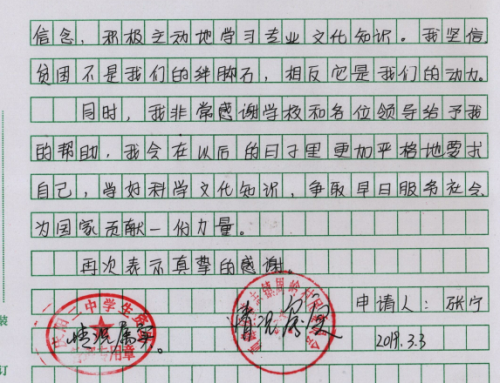 信念，积极主动地学习专业文化知识。我坚信
贫困不是我们的绊脚石，相反它是我们的动力。
同时，我非常感谢学校和各位领导给予我
的帮助，我会在以后的日子里更加严格地要求
自己，学好科学文化知识，争取早日服务社会
为国家贡献一份力量。
再次表示真挚的感谢。
情况属实。
情况属实
申请人：张宁
2019.3.3
装
订